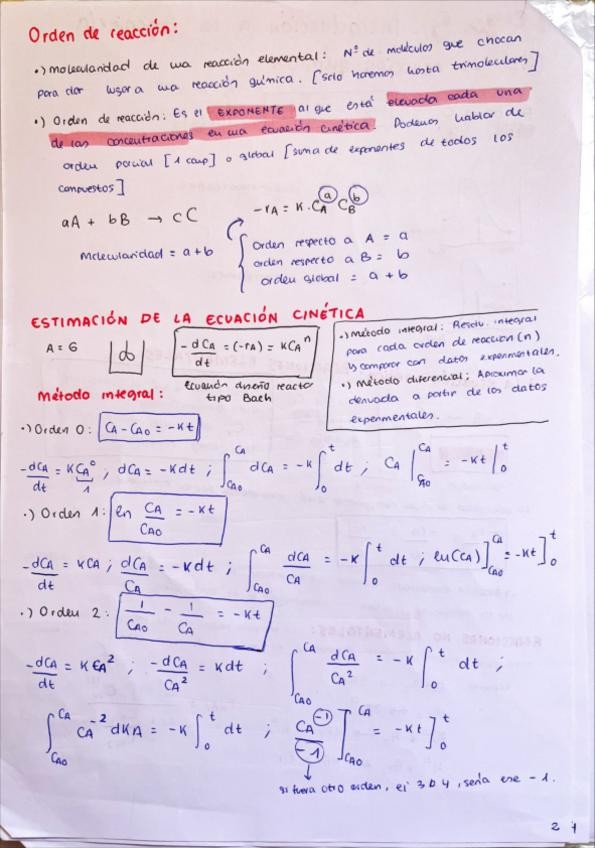 Orden de reacción:
·) Molecularidad de una reacción elemental: Nº de moléculas que chocan
para dar lugar a una reacción química. [solo haremos hasta trimoleculares]
·) Orden de reacción: Es el EXPONENTE al que está elevada cada una
de las concentraciones en una ecuación cinética. Podemos hablar de
orden parcial [1 comp] o global [suma de exponentes de todos los
compuestos]
aA + bB → cC
-rA = K·CA^a CB^b
Molecularidad = a+b
Orden respecto a A = a
orden respecto a B = b
orden global = a + b
ESTIMACIÓN DE LA ECUACIÓN CINÉTICA
A = G
-dCA/dt = (-rA) = KCA^n
ecuación diseño reactor
tipo Bach
·) Método integral: Resolv. integral
para cada orden de reacción (n)
y comparar con datos experimentales.
·) Método diferencial: Aproximar la
derivada a partir de los datos
experimentales.
Método integral:
·) Orden 0: CA - CA0 = -Kt
-dCA/dt = KCA^0 ; dCA = -Kdt ; ∫_CA0^CA dCA = -K ∫_0^t dt ; CA |_CA0^CA = -Kt |_0^t
1
·) Orden 1: ln CA/CA0 = -Kt
-dCA/dt = KCA ; dCA/CA = -Kdt ; ∫_CA0^CA dCA/CA = -K ∫_0^t dt ; ln(CA)]_CA0^CA = -Kt]_0^t
·) Orden 2: 1/CA0 - 1/CA = -Kt
-dCA/dt = KCA^2 ; -dCA/CA^2 = Kdt ; ∫_CA0^CA dCA/CA^2 = -K ∫_0^t dt ;
∫_CA0^CA CA^-2 dKA = -K ∫_0^t dt ; CA^-1/-1 ]_CA0^CA = -Kt]_0^t
si fuera otro orden, ej 3 ó 4, sería ese - 1.
2